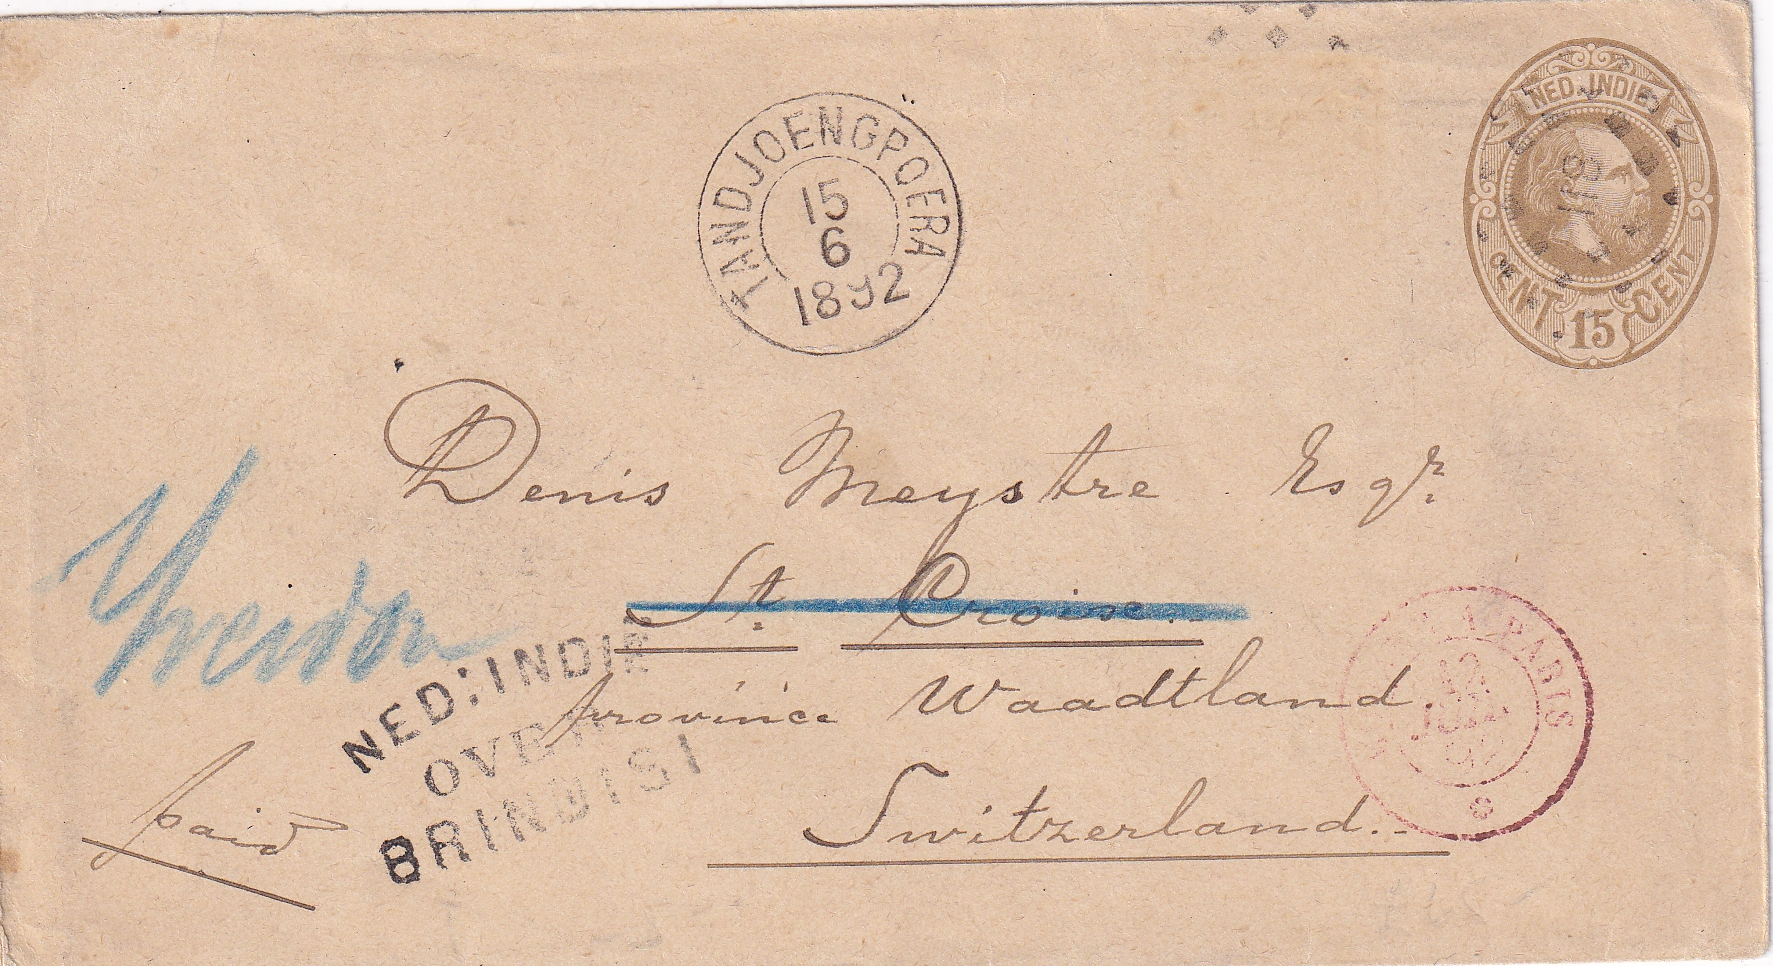 NED. INDIE
CENT. 15 CENT
TANDJOENGPOERA
15
6
1892
Denis Meystre Esqr.
St. Croix
Yverdon
Province Waadtland.
Switzerland.
Paid
NED: INDIE
OVER
BRINDISI
A PARIS
12